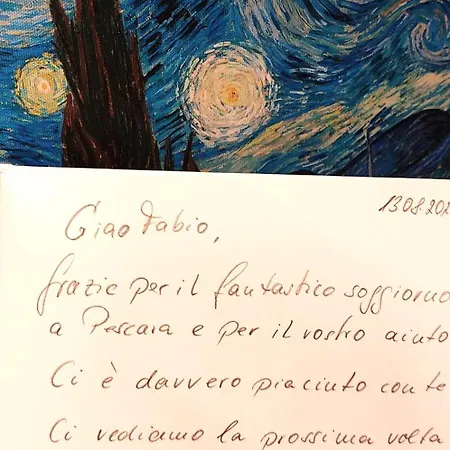 13.08.202
Ciao Fabio,
grazie per il fantastico soggiorno
a Pescara e per il vostro aiuto
Ci è davvero piaciuto con te
Ci vediamo la prossima volta